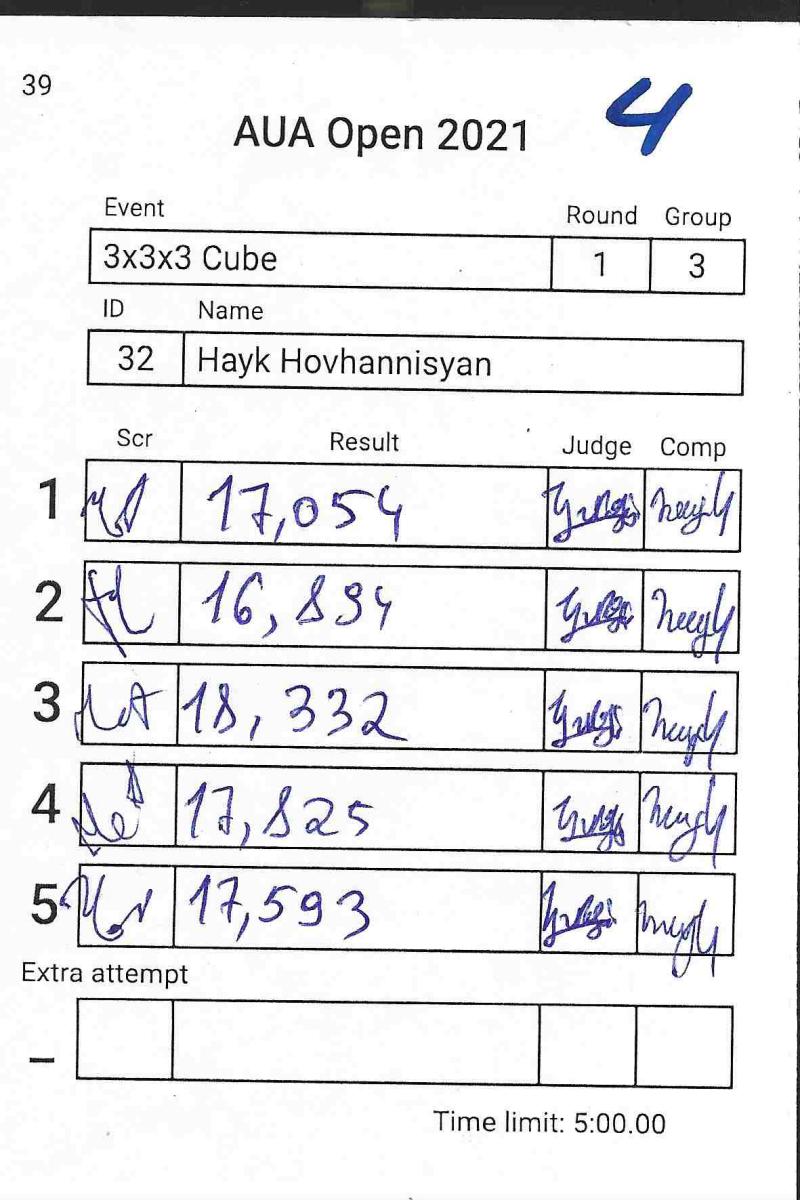 39
AUA Open 2021
4
Event Round Group
3x3x3 Cube 1 3
ID Name
32 Hayk Hovhannisyan
Scr Result Judge Comp
1 17,054
2 16,894
3 18,332
4 17,825
5 17,593
Extra attempt
–
Time limit: 5:00.00